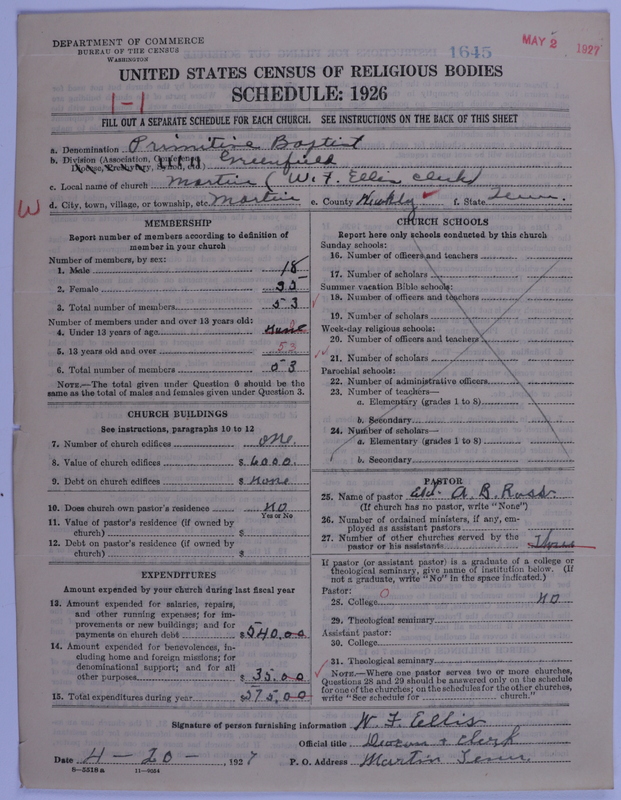 DEPARTMENT OF COMMERCE
BUREAU OF THE CENSUS
WASHINGTON
1645
MAY 2 1927
UNITED STATES CENSUS OF RELIGIOUS BODIES
SCHEDULE: 1926
1-1
FILL OUT A SEPARATE SCHEDULE FOR EACH CHURCH. SEE INSTRUCTIONS ON THE BACK OF THIS SHEET
a. Denomination Primitive Baptist
b. Division (Association, Conference, Greenfield
Diocese, Presbytery, Synod, etc.)
c. Local name of church Martin (W. F. Ellis Clerk)
W
d. City, town, village, or township, etc. Martin e. County Weakley f. State Tenn.
MEMBERSHIP
Report number of members according to definition of
member in your church
Number of members, by sex:
1. Male 18
2. Female 35
3. Total number of members 53
Number of members under and over 13 years old:
4. Under 13 years of age None
5. 13 years old and over 53
6. Total number of members 53
NOTE.—The total given under Question 6 should be the
same as the total of males and females given under Question 3.
CHURCH BUILDINGS
See instructions, paragraphs 10 to 12
7. Number of church edifices one.
8. Value of church edifices $ 6000.
9. Debt on church edifices $ None
10. Does church own pastor's residence NO
Yes or No
11. Value of pastor's residence (if owned by
church) $
12. Debt on pastor's residence (if owned by
church) $
EXPENDITURES
Amount expended by your church during last fiscal year
13. Amount expended for salaries, repairs,
and other running expenses; for im-
provements or new buildings; and for
payments on church debt $540.00
14. Amount expended for benevolences, in-
cluding home and foreign missions; for
denominational support; and for all
other purposes $ 35.00
15. Total expenditures during year $575.00
CHURCH SCHOOLS
Report here only schools conducted by this church
Sunday schools:
16. Number of officers and teachers
17. Number of scholars
Summer vacation Bible schools:
18. Number of officers and teachers
19. Number of scholars
Week-day religious schools:
20. Number of officers and teachers
21. Number of scholars
Parochial schools:
22. Number of administrative officers
23. Number of teachers—
a. Elementary (grades 1 to 8)
b. Secondary
24. Number of scholars—
a. Elementary (grades 1 to 8)
b. Secondary
PASTOR
25. Name of pastor Eld. A. B. Ross
(If church has no pastor, write "None")
26. Number of ordained ministers, if any, em-
ployed as assistant pastors
27. Number of other churches served by the
pastor or his assistants Three
If pastor (or assistant pastor) is a graduate of a college or
theological seminary, give name of institution below. (If
not a graduate, write "No" in the space indicated.)
Pastor: 0
28. College NO
29. Theological seminary
Assistant pastor:
30. College
31. Theological seminary
NOTE.—Where one pastor serves two or more churches,
Questions 28 and 29 should be answered only on the schedule
for one of the churches; on the schedules for the other churches,
write "See schedule for church."
Signature of person furnishing information W F Ellis
Official title Deacon & Clerk
Date 4-20-, 1927 P. O. Address Martin Tenn.
8-5518a 11-9054